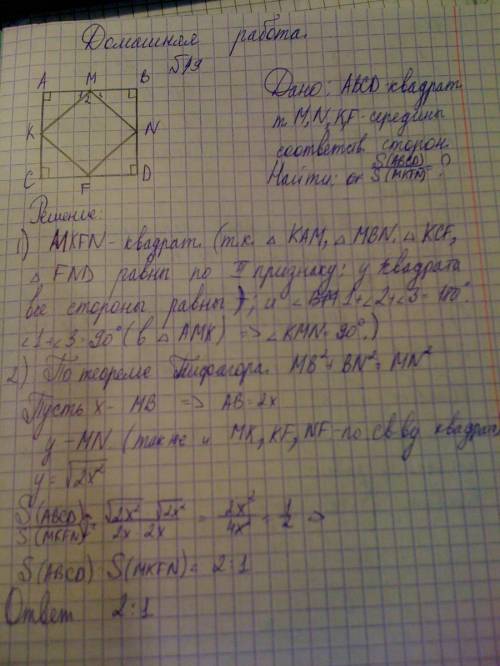 Домашняя работа.
№19
A M B
1 2 3
K N
C F D
Дано: ABCD-квадрат
т. M,N,K,F-середины
соответств сторон.
Найти: S(ABCD)/S(MKFN)-?
Решение:
1) MKFN-квадрат (т.к. △ KAM, △ MBN, △ KCF,
△ FND равны по II признаку: у квадрата
все стороны равны); и ∠1+∠2+∠3=180°
∠1+∠3=90° (в △ AMK) => ∠KMN=90°.)
2) По теореме Пифагора. MB²+BN²=MN²
Пусть x - MB => AB=2x
y-MN (также и MK, KF, NF-по св-ву квадрата
y=√2x²
S(ABCD)/S(MKFN) = √2x² · √2x² / 2x · 2x = 2x²/4x² = 1/2 =>
S(ABCD) S(MKFN)= 2:1
Ответ 2:1